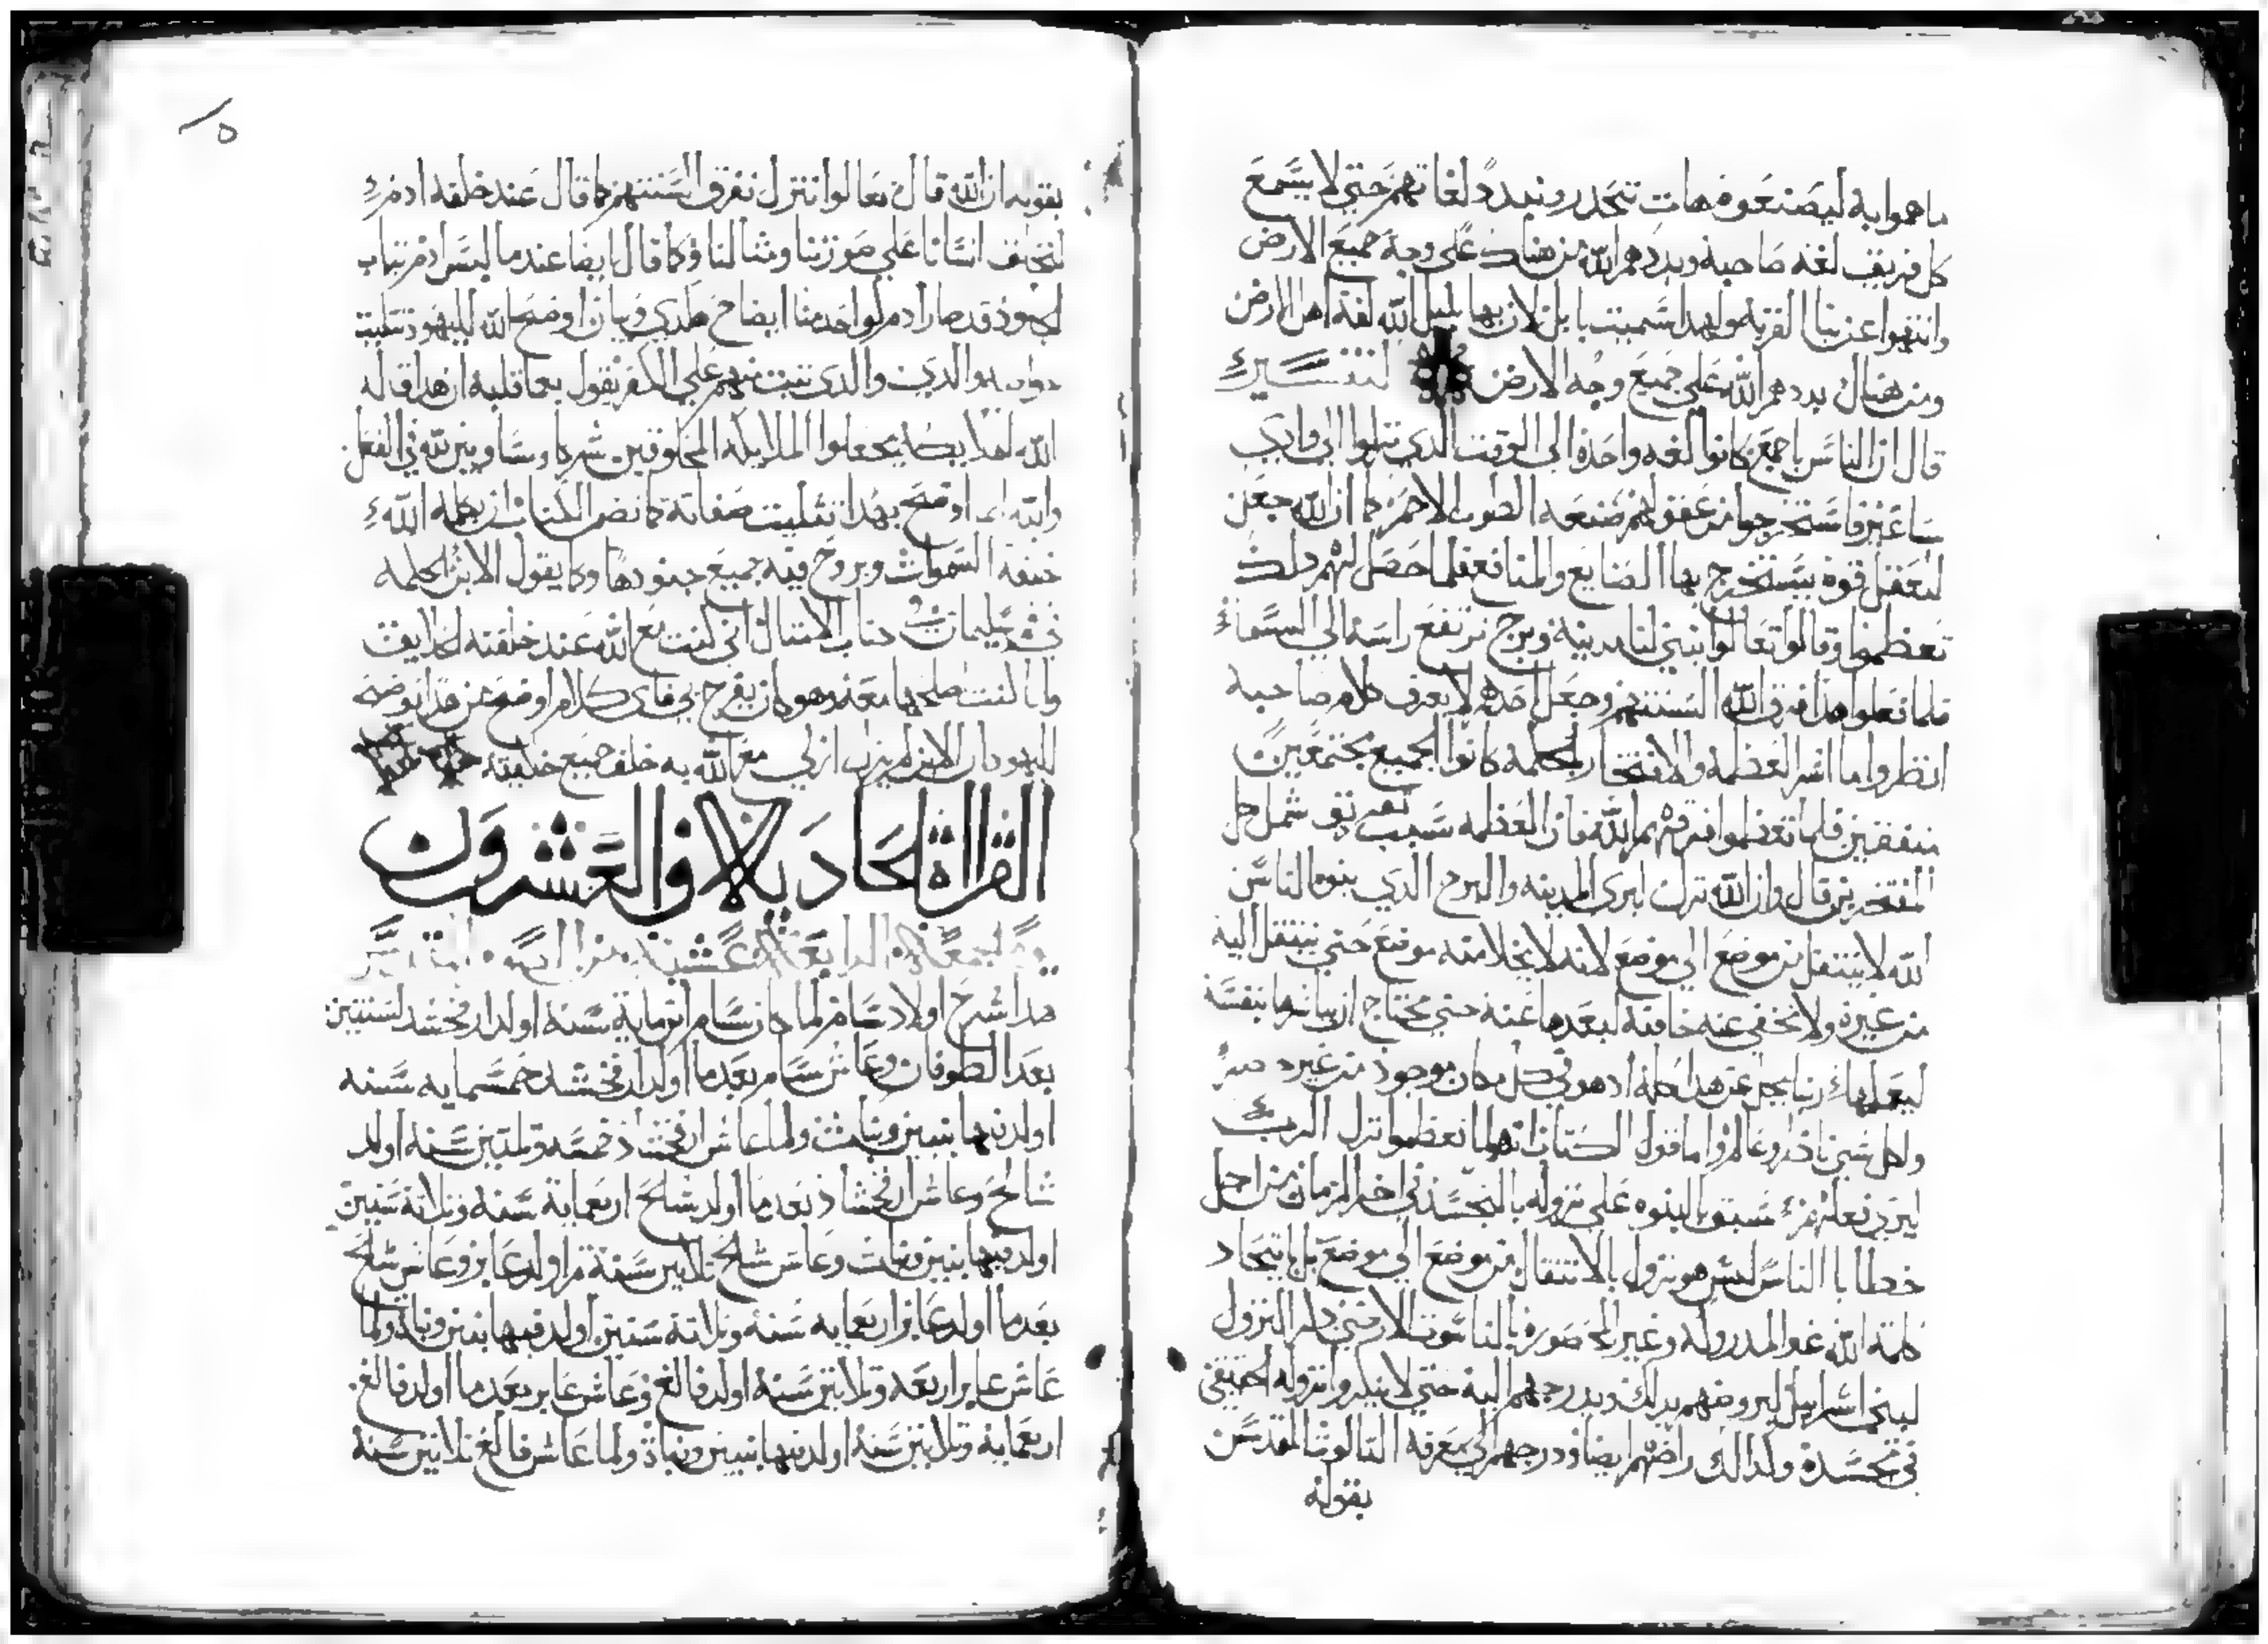 ما هموا به ليصنعوه فهات ننحدر ونبدد لغاتهم حتى لا يسمع
كل فريق لغه صاحبه وبددهم الله من هناك على وجه جميع الارض
وانتهوا عن بنا القريه ولهدا سميت بابل لان بها بلبل الله لغة اهل الارض
ومن هناك بددهم الله على جميع وجه الارض التفسير
قال ان الناس باجمع كانوا لغه واحدة الى الوقت الدي نزلوا الى وادي
ساعير فاستخرجوا من عقولهم صنعه الطوب الاحمر كما ان الله جعل
للعقل قوة يستخرج بها الصنايع والمنافع فلما حصل لهم دلك
تعظموا وقالوا تعالوا نبني لنا مدينة وبرج ترتفع راسه الى السماء
فلما فعلوا هدا فرق الله السنتهم وجعل احدهم لا يعرف كلام صاحبه
انظروا ما اشر العظمه والافتخار بالحكمه كانوا الجميع مجتمعين
متفقين فلما تعظموا فرقهم الله فان العظمه سبب تفريق شمل كل
المفتخرين قال وان الله نزل ليرى المدينه والبرج الدي بنوه الناس
الله لا ينتقل من موضع الى موضع لانه لا يخلا منه موضع حتى ينتقل اليه
من غيره ولا تخفى عنه خافية لبعدها عنه حتى يحتاج ان يباشرها بنفسه
ليعلمها ربنا يجل عن هدا كله اد هو في كل مكان موجود من غير
ولكل شي ناظر وعالم واما قول الكتاب انهم لما تعظموا نزل الرب
ليرى فعلهم سبق بالنبوه على نزوله بالتجسد في اخر الزمان من اجل
خطايا الناس ليس هو نزول بالانتقال من موضع الى موضع بل باتحاد
كلمة الله الغير المدروكه وغير المحصوره بالناسوت الارضي دكر النزول
لبني اسراييل ليروضهم بدلك ويدرجهم اليه حتى لا ينكروا نزوله الحقيقي
في تجسده ولدالك راضهم ايضا ودرجهم الى معرفة التالوت المقدس
بقوله
بقوله ان الله قال تعالوا ننزل نفرق السنتهم كما قال عند خلقه ادم
لنخلق انسانا على صورتنا ومثالنا وكما قال ايضا عندما لبس ادم تياب
الجلود قد صار ادم كواحد منا ايضاح هدي وبيان اوضح الله لليهود تتليت
والدي تبت منهم على الكفر يقول بعما قلبه ان هدا قاله
الله للملايكه يجعلوا الملايكه المخلوقين شركا ومساويين لله في الفعل
والله انما اوضح بهدا تتليت صفاته كما نص الكتاب ان بكلمه الله
خلقة السموات وبروح فيه جميع جنودها وكما يقول الابن الحكمه
سليمان في كتاب الامتال اني كنت مع الله عند خلقته الخلايق
وانا كنت صلحها معه وهو كان يفرح بي فاى كلام اوضح من هدا يوضح
لليهود ان الابن لم يزل ازلي مع الله به خلق جميع خليقته
القراة الحاديه والعشرون
يوم الجمعة الرابعة عشية من السفر
هدا شرح اولاد سام لما كان سام ابن ماية سنة اولد ارفخشد لسنتين
بعد الطوفان وعاش سام بعدما اولد ارفخشد خمسمايه سنه
اولد فيها بنين وبنات ولما عاش ارفخشاد خمسه وتلتين سنه اولد
شالح وعاش ارفخشاد بعدما اولد شالح اربعماية سنة وتلاتة سنين
اولد فيها بنين وبنات وعاش شالح تلاتين سنة تم اولد عابر وعاش شالح
بعدما اولد عابر اربعمايه سنه وتلاتة سنين اولد فيها بنين وبناة ولما
عاش عابر اربعه وتلاتين سنة اولد فالغ وعاش عابر بعدما اولد فالغ
اربعماية وتلاتين سنة اولد فيها بنيين وبناة ولما عاش فالغ تلاتين سنة